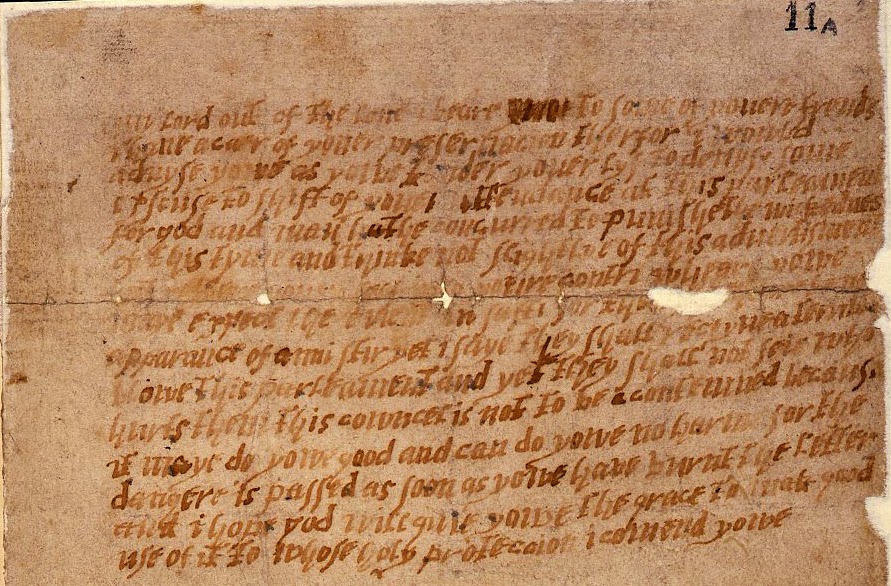 11A
my lord out of the love i beare to some of youere frends
i have a caer of youer preservacion therfor i would
advyse yowe as yowe tender youer lyf to devyse some
exscuse to shift of youer attendance at this parleament
for god and man hathe concurred to punishe the wickednes
of this tyme and thinke not slightlye of this advertisment
youre contri wheare yowe
maye expect the event in safti for
apparance of anni stir yet i saye they shall receyve a terrible
blowe this parleament and yet they shall not seie who
hurts them this cowncel is not to be acontemned because
it maye do yowe good and can do yowe no harme for the
dangere is passed as soon as yowe have burnt the letter
and i hope god will give yowe the grace to mak good
use of it to whose holy proteccion i comend yowe